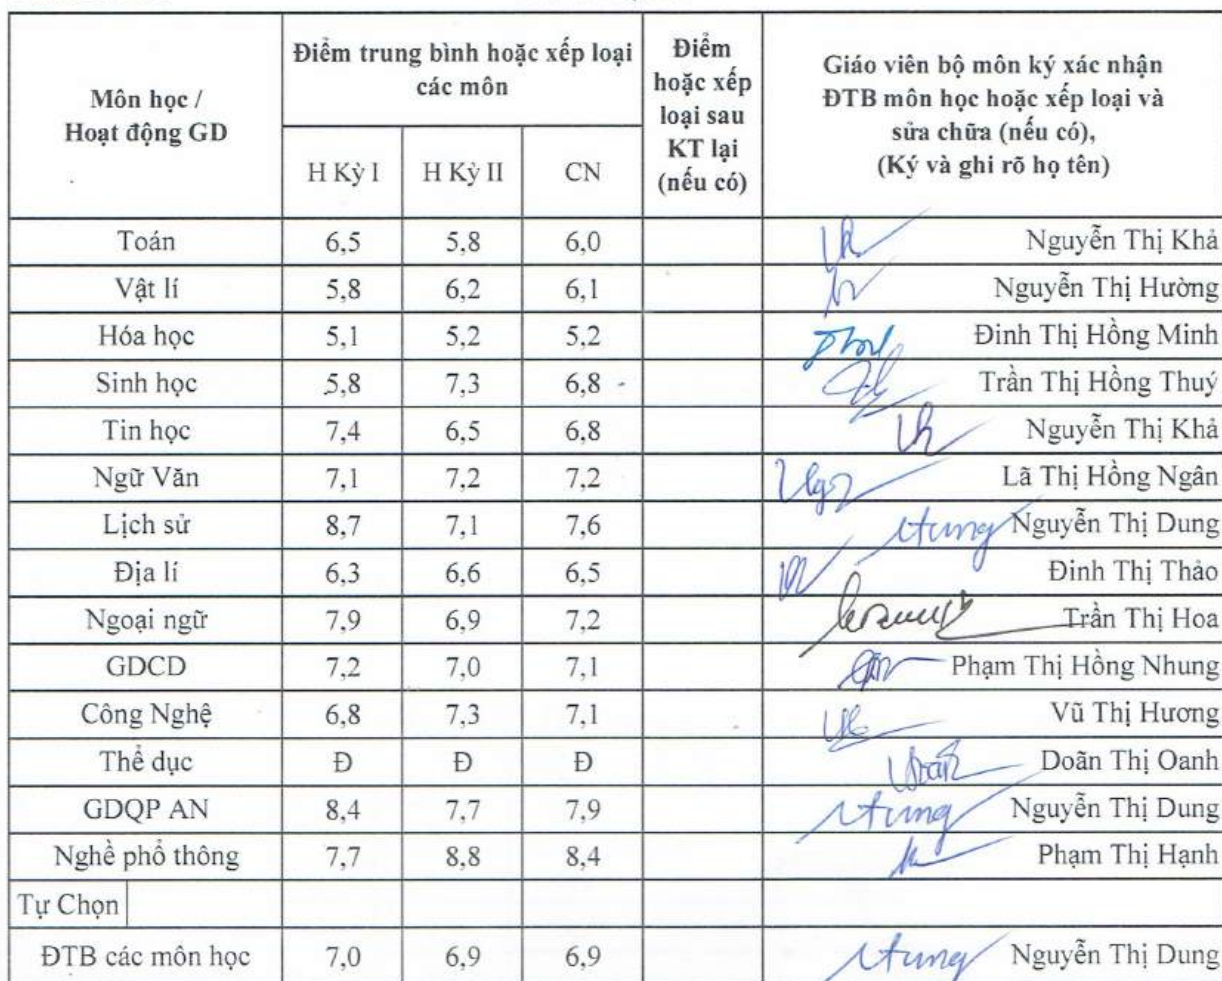 Môn học /
Hoạt động GD
Điểm trung bình hoặc xếp loại
các môn
H Kỳ I H Kỳ II CN
Điểm
hoặc xếp
loại sau
KT lại
(nếu có)
Giáo viên bộ môn ký xác nhận
ĐTB môn học hoặc xếp loại và
sửa chữa (nếu có),
(Ký và ghi rõ họ tên)
Toán 6,5 5,8 6,0 Nguyễn Thị Khả
Vật lí 5,8 6,2 6,1 Nguyễn Thị Hường
Hóa học 5,1 5,2 5,2 Đinh Thị Hồng Minh
Sinh học 5,8 7,3 6,8 Trần Thị Hồng Thuý
Tin học 7,4 6,5 6,8 Nguyễn Thị Khả
Ngữ Văn 7,1 7,2 7,2 Lã Thị Hồng Ngân
Lịch sử 8,7 7,1 7,6 Nguyễn Thị Dung
Địa lí 6,3 6,6 6,5 Đinh Thị Thảo
Ngoại ngữ 7,9 6,9 7,2 Trần Thị Hoa
GDCD 7,2 7,0 7,1 Phạm Thị Hồng Nhung
Công Nghệ 6,8 7,3 7,1 Vũ Thị Hương
Thể dục Đ Đ Đ Doãn Thị Oanh
GDQP AN 8,4 7,7 7,9 Nguyễn Thị Dung
Nghề phổ thông 7,7 8,8 8,4 Phạm Thị Hạnh
Tự Chọn
ĐTB các môn học 7,0 6,9 6,9 Nguyễn Thị Dung